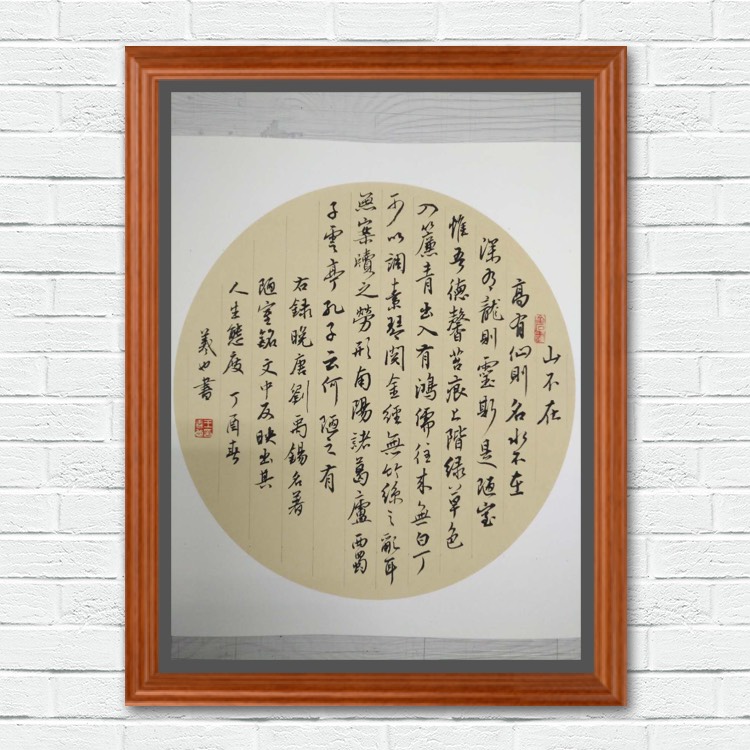 山不在
高有仙則名水不在
深有龍則靈斯是陋室
惟吾德馨苔痕上階綠草色
入簾青出入有鴻儒往來無白丁
可以調素琴閱金經無竹絲之亂耳
無案牘之勞形南陽諸葛廬西蜀
子雲亭孔子云何陋之有
右録晚唐劉禹錫名著
陋室銘文中反映出其
人生態度丁酉春
羲也書